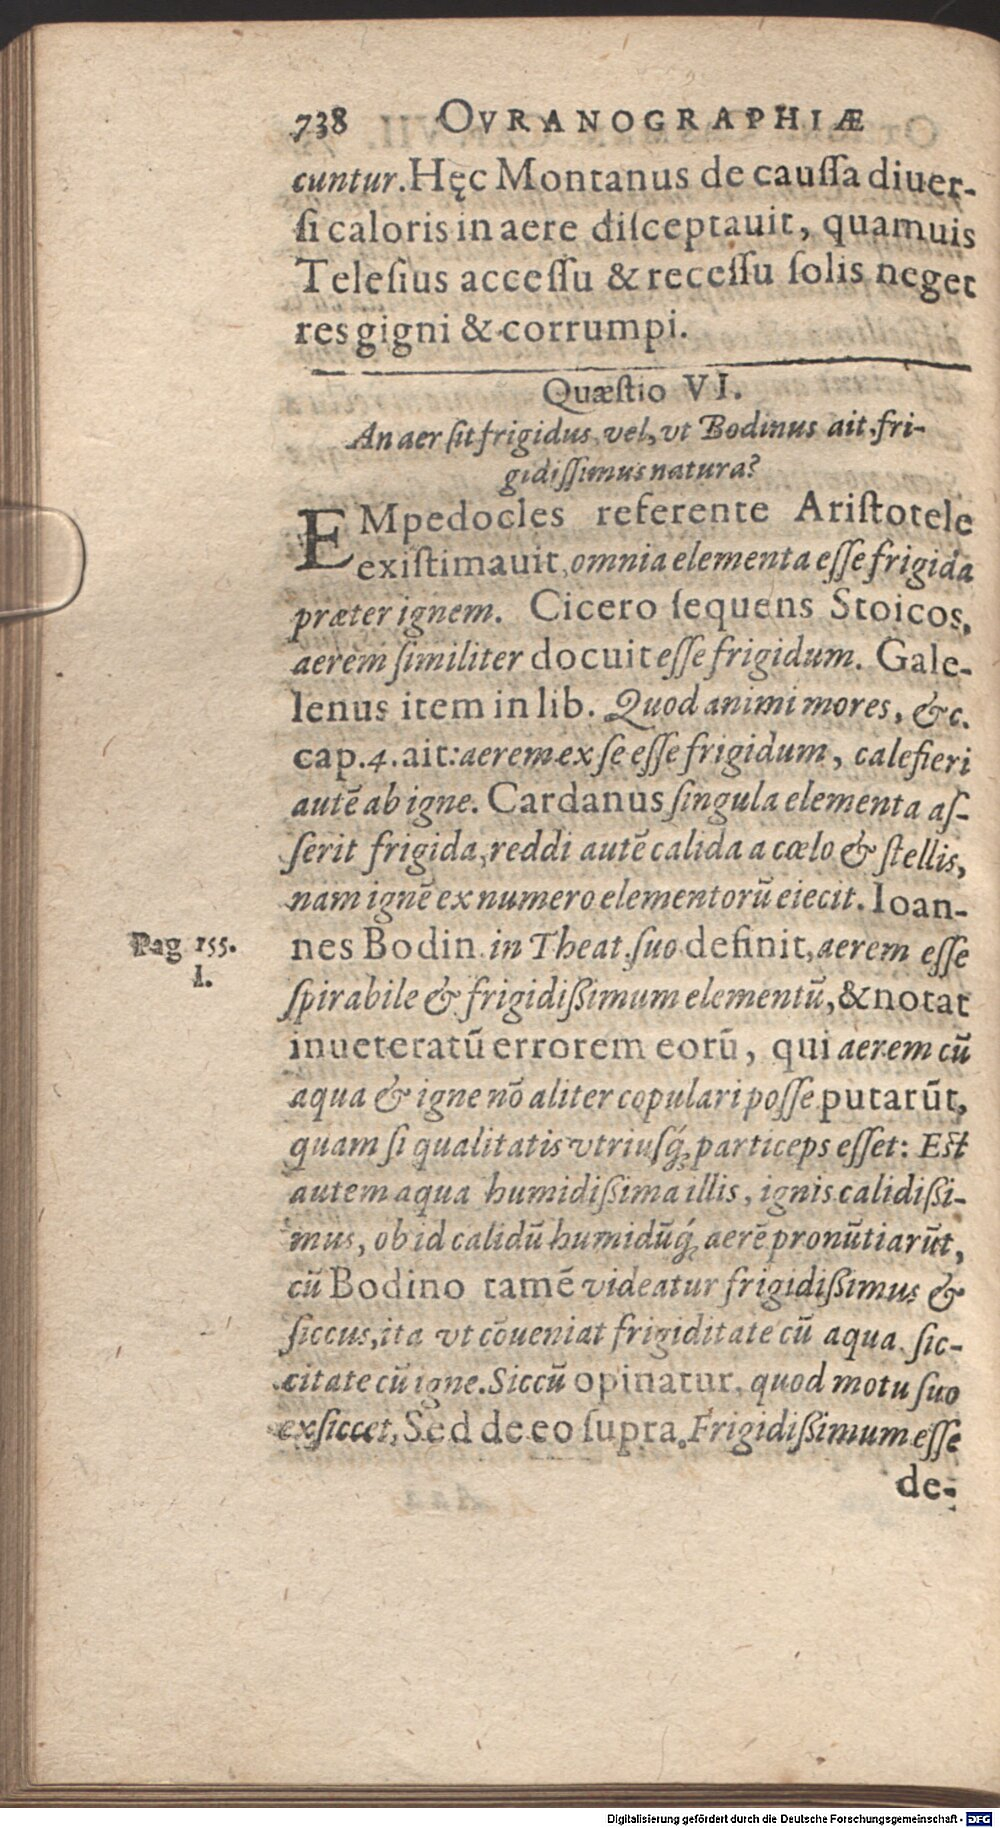 738 OVRANOGRAPHIÆ
cuntur. Hęc Montanus de caussa diuer-
si caloris in aere disceptauit, quamuis
Telesius accessu & recessu solis neget
res gigni & corrumpi.
Quæstio VI.
An aer sit frigidus, vel, vt Bodinus ait, fri-
gidissimus natura?
EMpedocles referente Aristotele
existimauit, omnia elementa esse frigida
præter ignem. Cicero sequens Stoicos,
aerem similiter docuit esse frigidum. Gale-
lenus item in lib. Quod animi mores, &c.
cap. 4. ait: aerem ex se esse frigidum, calefieri
autē ab igne. Cardanus singula elementa as-
serit frigida, reddi autē calida a cœlo & stellis,
nam ignē ex numero elementorū eiecit. Ioan-
Pag 155.
nes Bodin. in Theat. suo definit, aerem esse
1.
spirabile & frigidißimum elementū, & notat
inueteratū errorem eorū, qui aerem cū
aqua & igne nō aliter copulari posse putarūt,
quam si qualitatis vtriusq́; particeps esset: Est
autem aqua humidißima illis, ignis calidißi-
mus, ob id calidū humidūq́; aerē pronūtiarūt,
cū Bodino tamē videatur frigidißimus &
siccus, ita vt cōueniat frigiditate cū aqua. sic-
citate cū igne. Siccū opinatur, quod motu suo
exsiccet, Sed de eo supra. Frigidißimum esse
de-
Digitalisierung gefördert durch die Deutsche Forschungsgemeinschaft - DFG